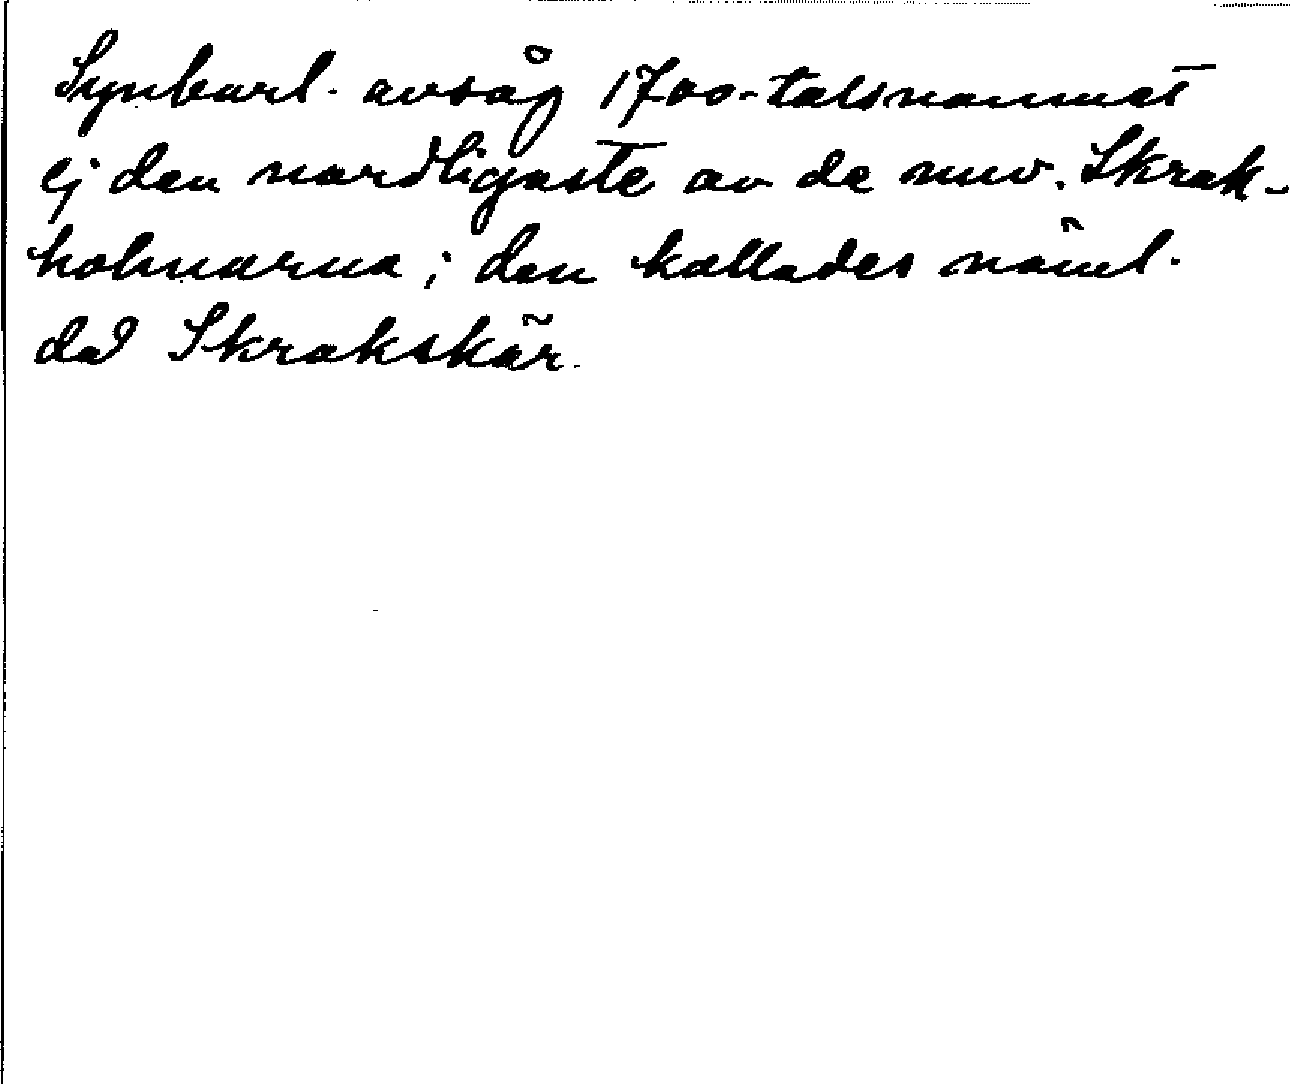 Synbarl. avsåg 1700-talsnamnet
ej den nordligaste av de nuv. Skrak-
holmarna; den kallades näml.
då Skrakskär.